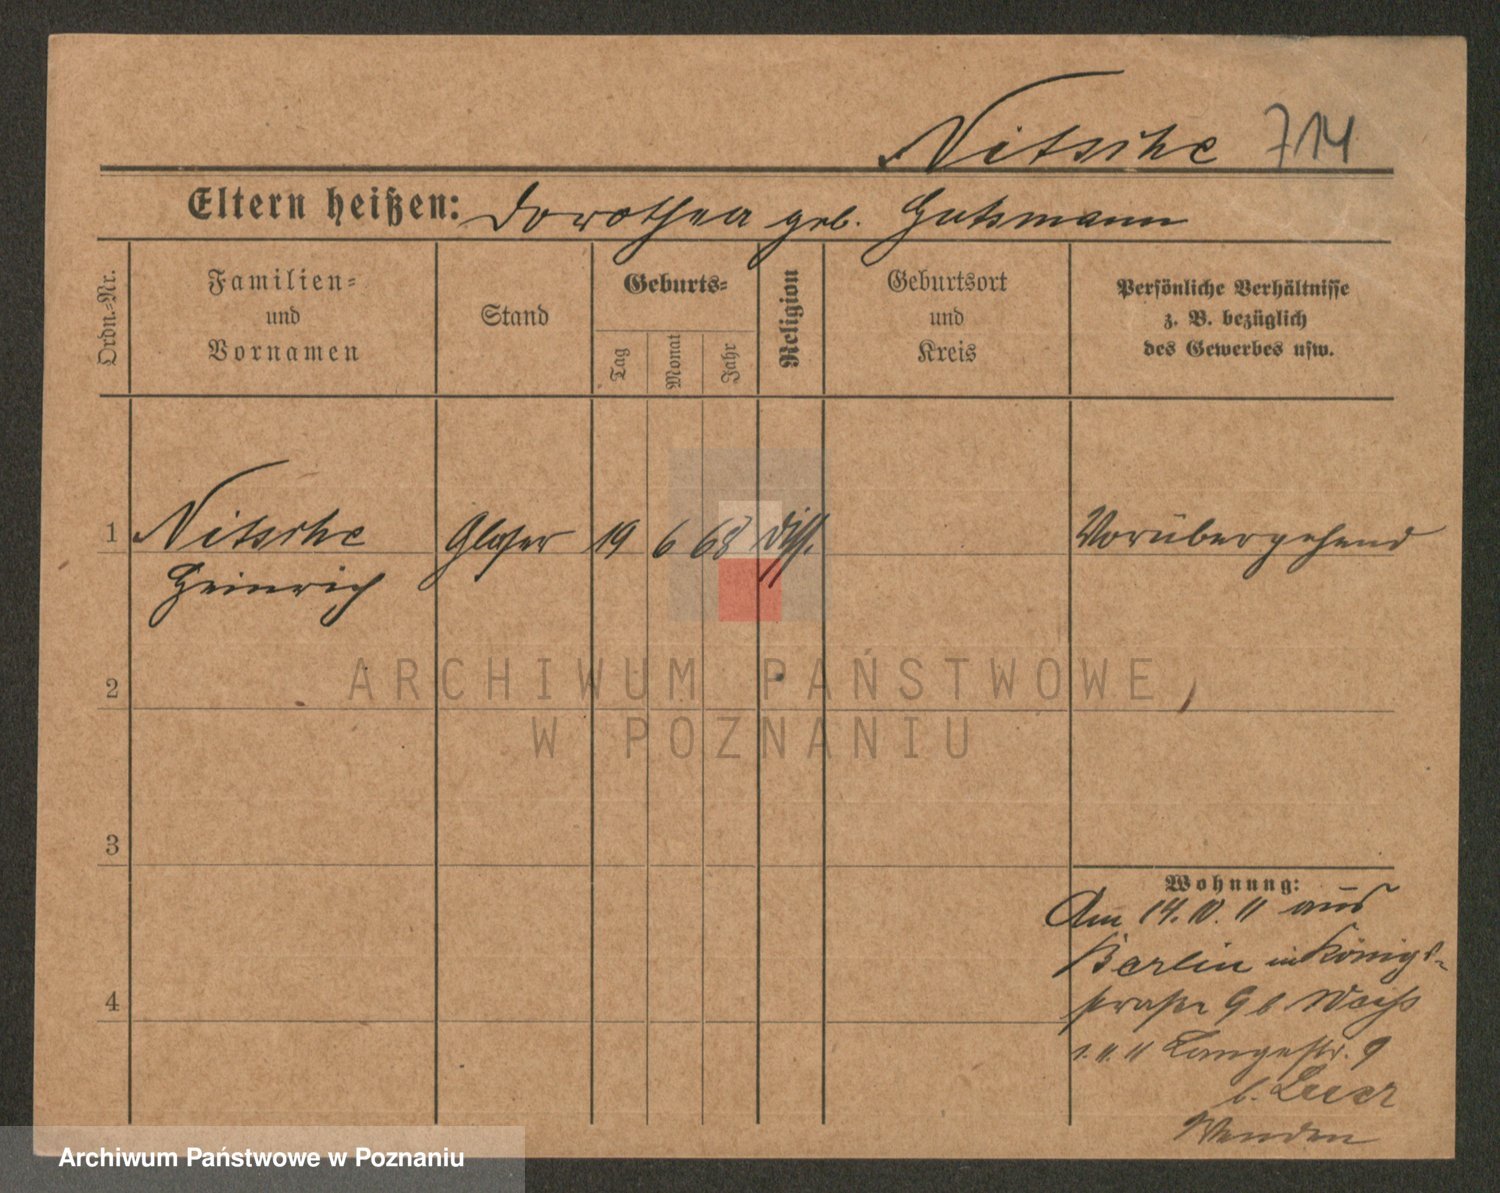 Nitsche 714
Eltern heißen: Dorothea geb. Gutsmann
Ordn.-Nr.
Familien-
und
Vornamen
Stand
Geburts-
Tag
Monat
Jahr
Religion
Geburtsort
und
Kreis
Persönliche Verhältnisse
z. B. bezüglich
des Gewerbes usw.
1 Nitsche Glaser 19 6 68 diss. Vorübergehend
Heinrich
2
3
4
Wohnung:
Am 14. 10. 11 aus
Berlin in Königs-
straße 9 b Weiss
1. 11. 11 Langestr. 9
b.
Wenden
ARCHIWUM PAŃSTWOWE
W POZNANIU
Archiwum Państwowe w Poznaniu